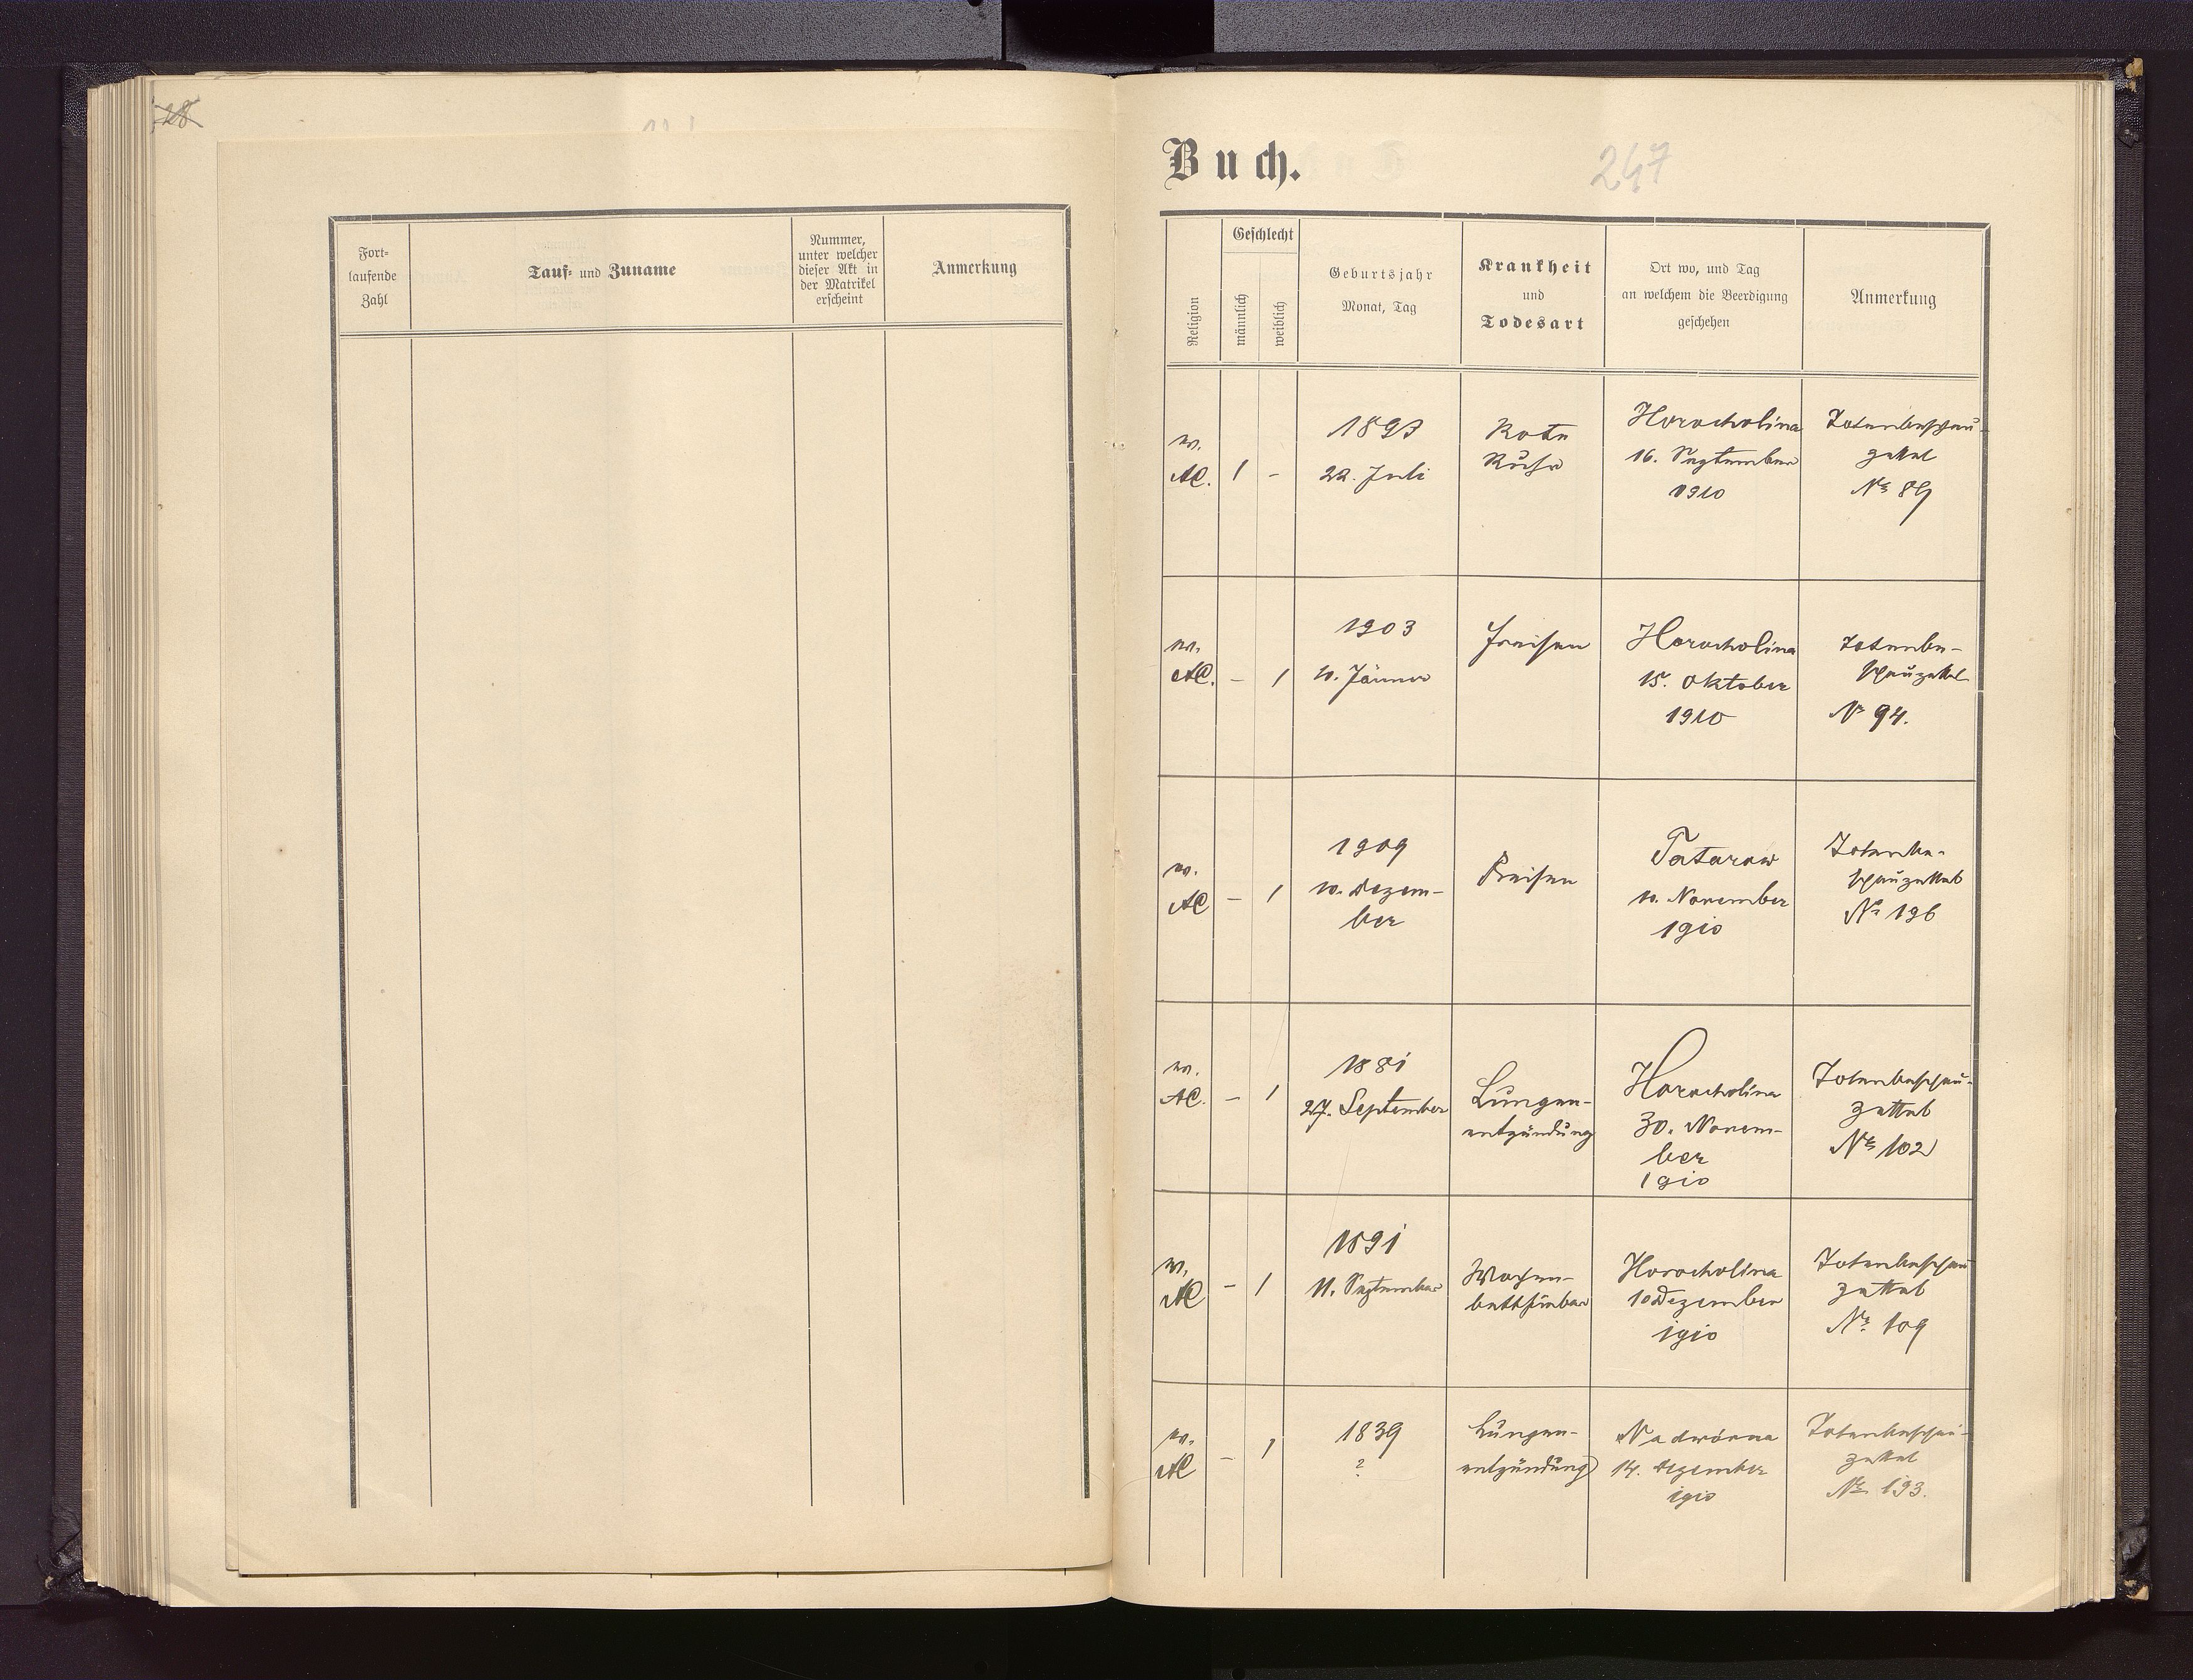 Fort-
laufende
Zahl
Tauf- und Zuname
Nummer,
unter welcher
dieser Akt in
der Matrikel
erscheint
Anmerkung
Buch.
247
Religion
Geschlecht
männlich
weiblich
Geburtsjahr
Monat, Tag
Krankheit
und
Todesart
Ort wo, und Tag
an welchem die Beerdigung
geschehen
Anmerkung
ev.
AC.
1
-
1893
22. Juli
Rote
Ruhr
Horocholina
16. September
1910
Totenbeschau-
zettel
No 89
ev.
AC.
-
1
1903
10. Jänner
Fraisen
Horocholina
15. Oktober
1910
Totenbe-
schauzettel
No 94.
ev.
AC
-
1
1909
10. Dezem-
ber
Fraisen
Tatarow
10. November
1910
Totenbe-
schauzettel
No 196
ev.
AC.
-
1
1881
27. September
Lungen-
entzündung
Horocholina
30. Novem-
ber
1910
Totenbeschau-
zettel
No 102
ev.
AC
-
1
1891
11. September
Wochen-
bettfieber
Horocholina
10 Dezember
1910
Totenbeschau
zettel
No 109
ev.
AC
-
1
1839
?
Lungen-
entzündung
Nadwórna
14. Dezember
1910
Totenbeschau-
zettel
No 193.